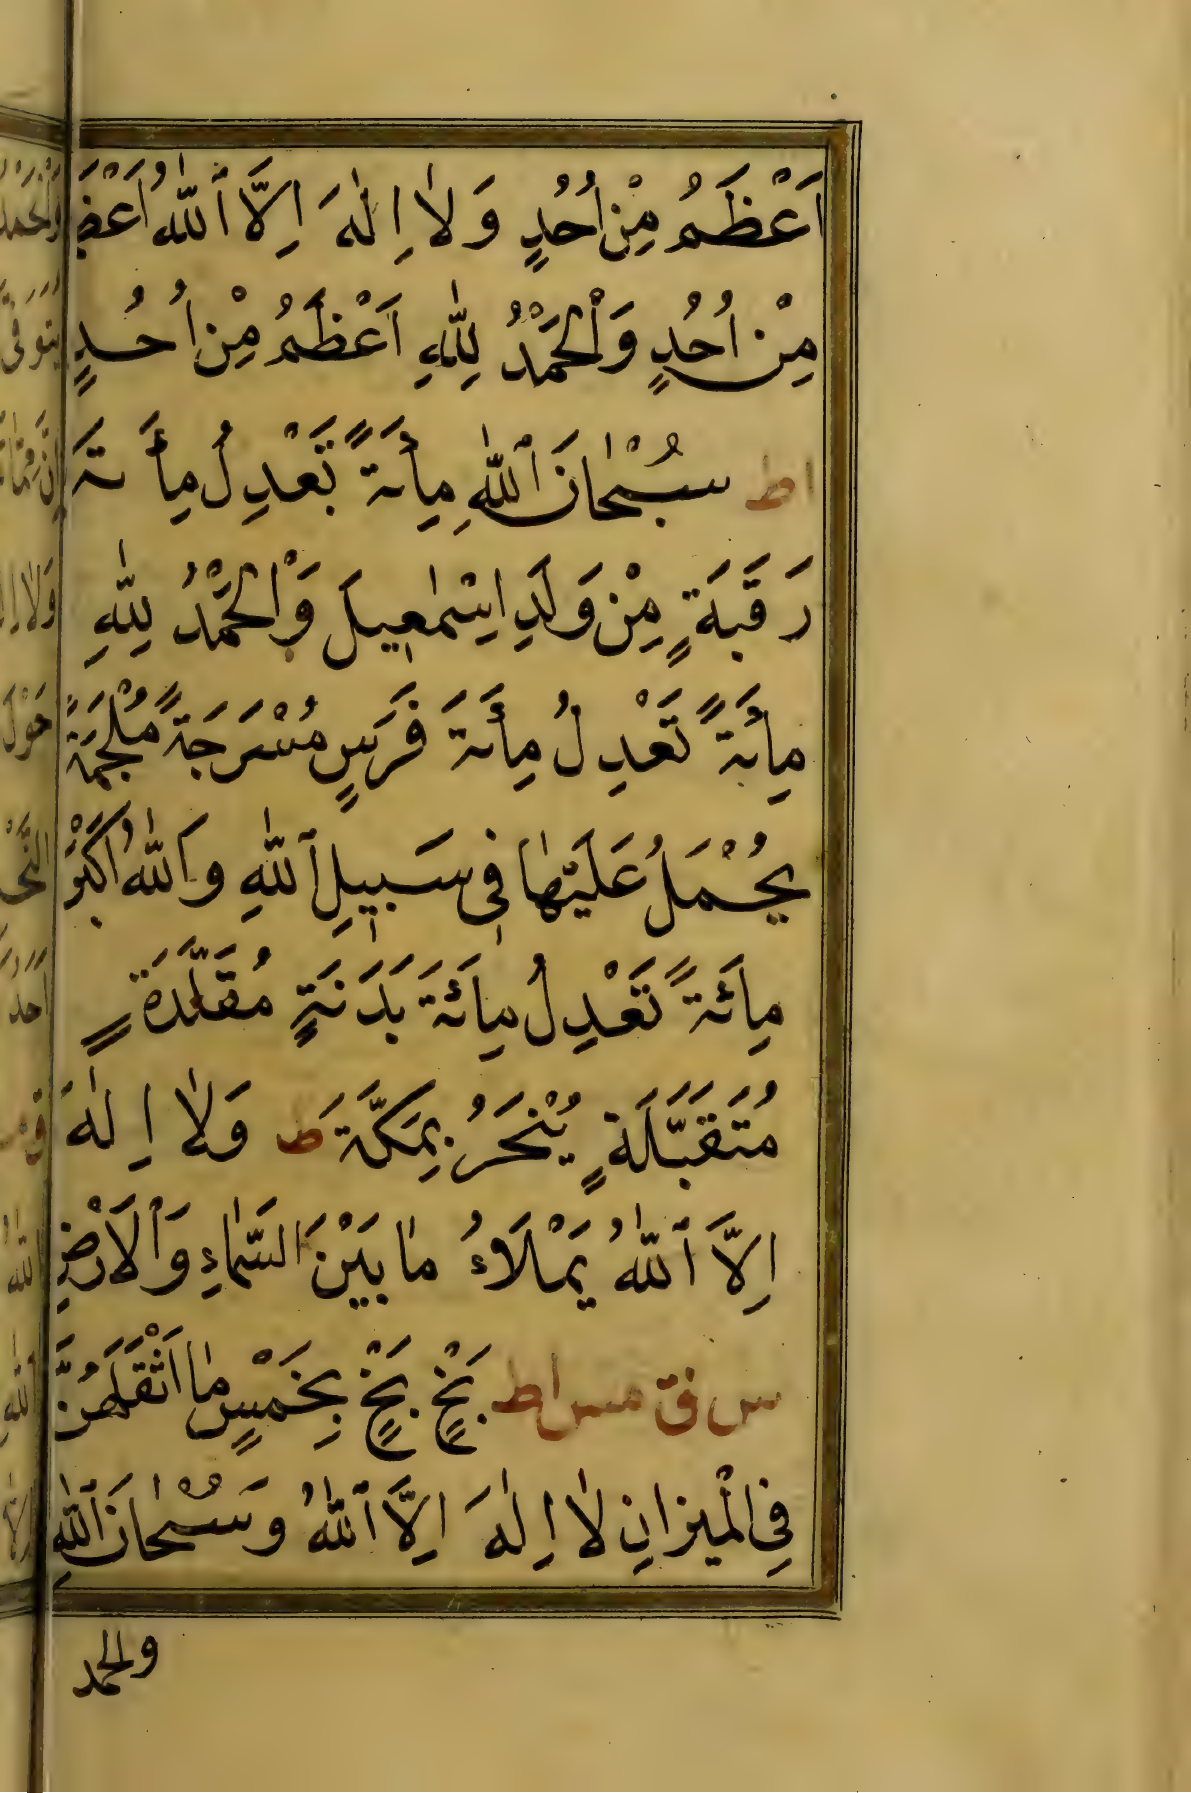 اَعْظَمُ مِنْ اُحُدٍ وَلَا اِلٰهَ اِلَّا اللّٰهُ اَعْظَمُ
مِنْ اُحُدٍ وَالْحَمْدُ لِلّٰهِ اَعْظَمُ مِنْ اُحُدٍ
اط سُبْحَانَ اللّٰهِ مِأَةً تَعْدِلُ مِأَةَ
رَقَبَةٍ مِنْ وَلَدِ اِسْمٰعِيلَ وَالْحَمْدُ لِلّٰهِ
مِأَئةً تَعْدِلُ مِأَئةَ فَرَسٍ مُسْرَجَةً مُلْجَمَةً
يُحْمَلُ عَلَيْهَا فِي سَبِيلِ اللّٰهِ وَاللّٰهُ اَكْبَرُ
مِائَةً تَعْدِلُ مِائَةَ بَدَنَةٍ مُقَلَّدَةٍ
مُتَقَبَّلَةٍ يُنْحَرُ بِمَكَّةَ ط وَلَا اِلٰهَ
اِلَّا اللّٰهُ يَمْلَاءُ مَا بَيْنَ السَّمَاءِ وَالْاَرْضِ
س ق مس اط بَخٍ بَخٍ بِخَمْسٍ مَا اَثْقَلَهُنَّ
فِي الْمِيزَانِ لَا اِلٰهَ اِلَّا اللّٰهُ وَسُبْحَانَ اللّٰهِ
والحمد